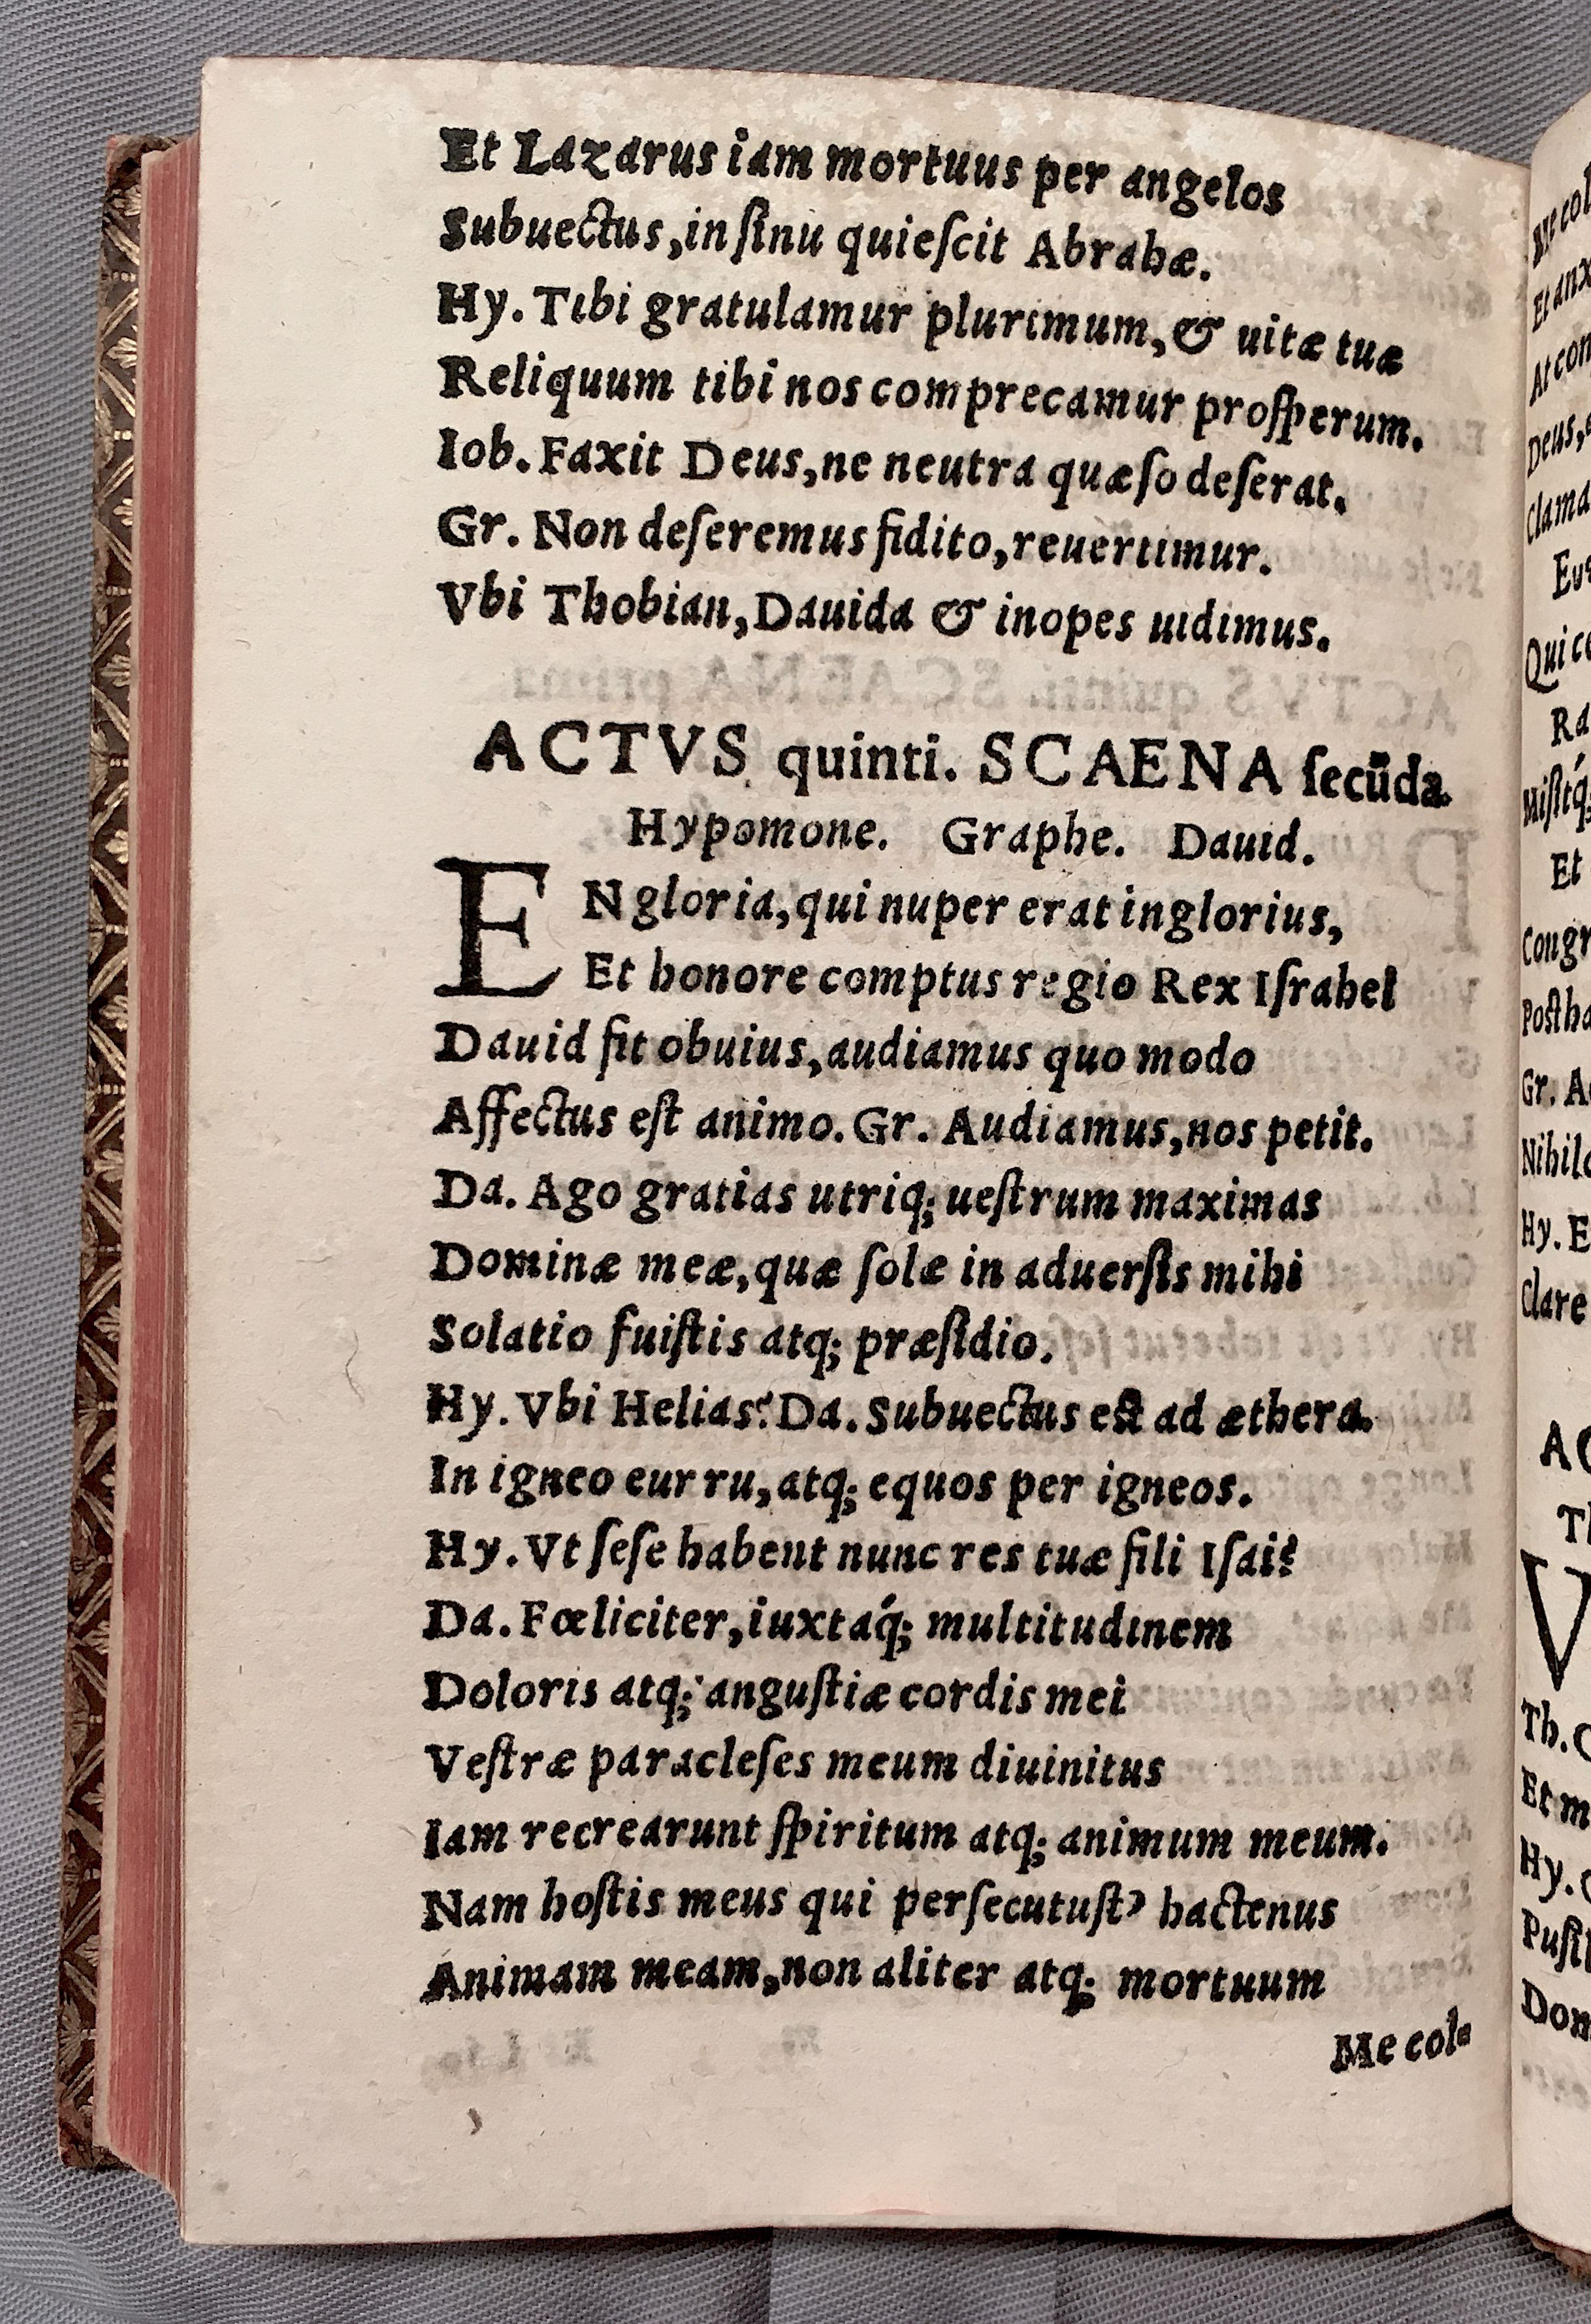 Et Lazarus iam mortuus per angelos
Subuectus,in ſinu quieſcit Abrahæ.
Hy. Tibi gratulamur plurimum,& uitæ tuæ
Reliquum tibi nos comprecamur proſperum.
Iob. Faxit Deus,ne neutra quæſo deſerat.
Gr. Non deſeremus fidito,reuertimur.
Vbi Thobian,Dauida & inopes uidimus.
ACTVS quinti. SCAENA ſecūda.
Hypomone. Graphe. Dauid.
EN gloria,qui nuper erat inglorius,
Et honore comptus regio Rex Iſrahel
Dauid fit obuius,audiamus quo modo
Affectus eſt animo. Gr. Audiamus,nos petit.
Da. Ago gratias utriq; ueſtrum maximas
Dominæ meæ,quæ ſolæ in aduerſis mihi
Solatio fuiſtis atq; præſidio.
Hy. Vbi Helias? Da. Subuectus eſt ad æthera.
In igneo eurru,atq; equos per igneos.
Hy. Vt ſeſe habent nunc res tuæ fili Iſai?
Da. Fœliciter,iuxtaq́; multitudinem
Doloris atq; anguſtiæ cordis mei
Veſtræ paracleſes meum diuinitus
Iam recrearunt ſpiritum atq; animum meum.
Nam hoſtis meus qui perſecutuſt' hactenus
Animam meam,non aliter atq; mortuum
Me col-
Et anx
At con
Deus,
Clama
Qui ce
Ra
Miſitq́;
Et
Congr
Poſt ha
Gr. A
Nihil
Hy. E
Clare
AC
Th
V
Th.
Et m
Hy.
Puſil
Dom